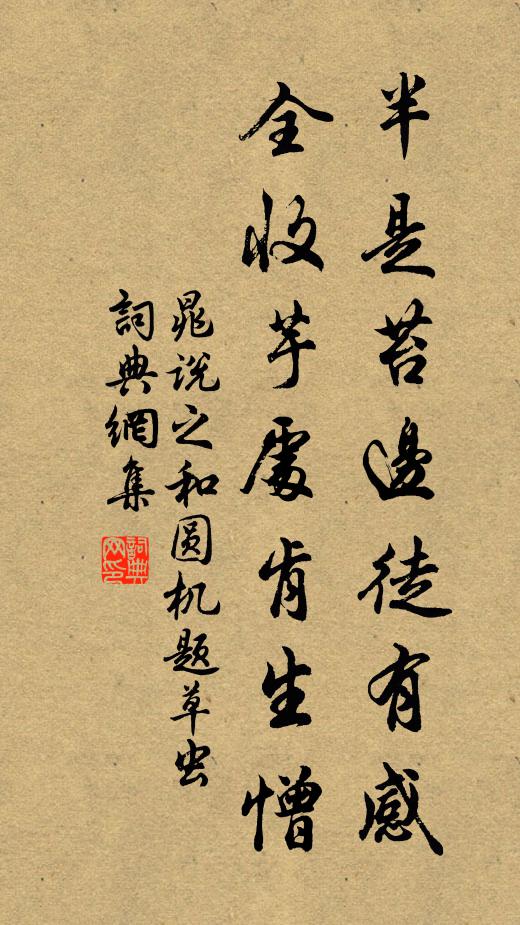 半是苔邊徒有感
全收芋處肯生憎
晁说之和圆机题草虫
詞典網集
詞典網印